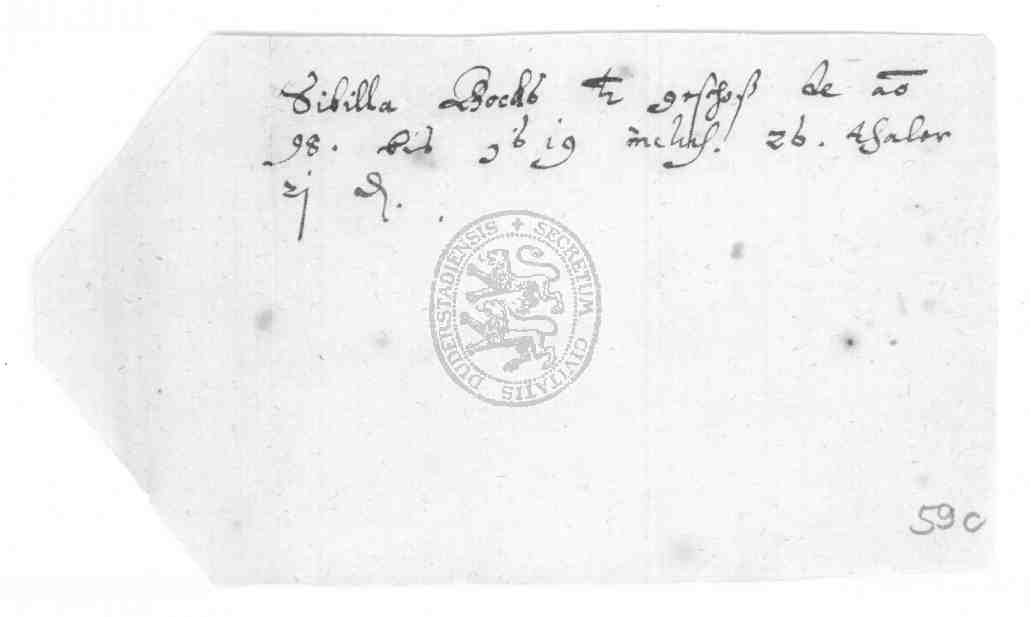 Sibilla Bocks dt geschoß de ao
98. bis 1619 inclus. 26. thaler
2j d.
SECRETUM CIVITATIS DUDERSTADIENSIS
59c